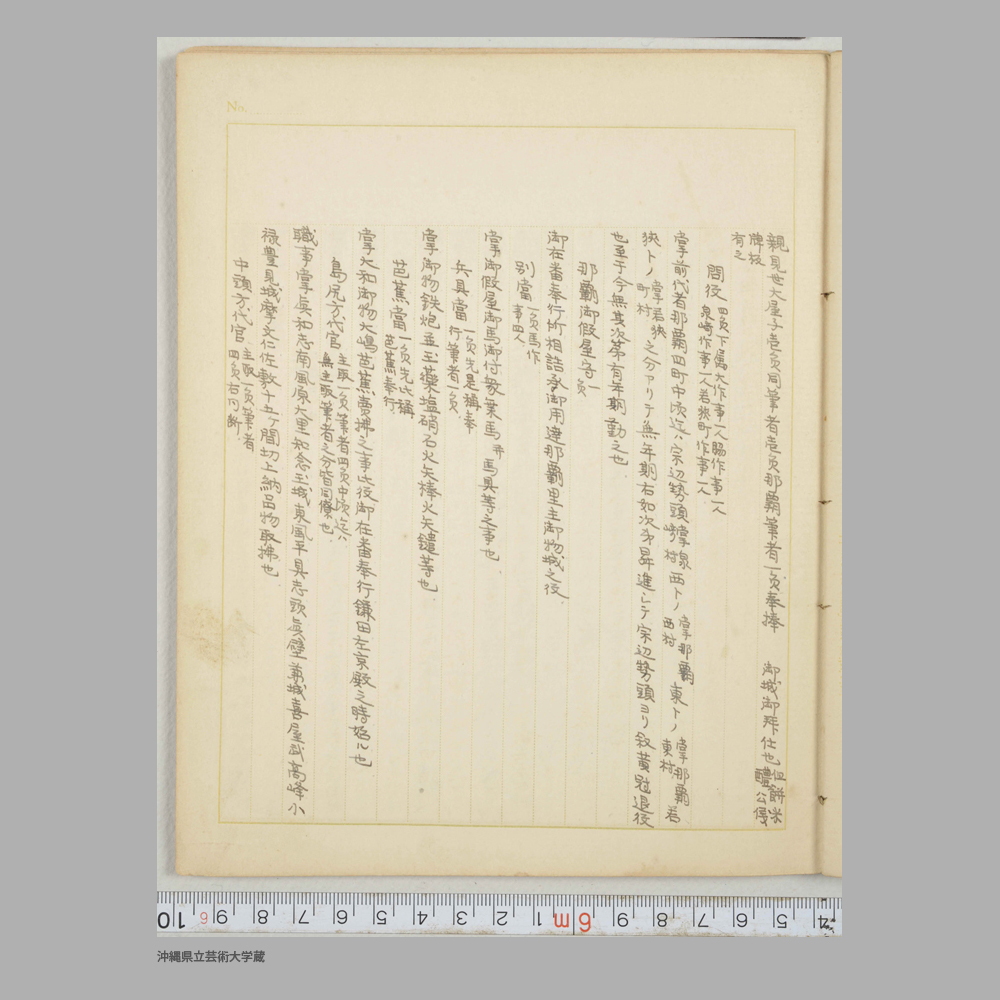 No.
親見世大屋子壱員同筆者壱員那覇筆者一員奉捧 御城御拜仕也 但餅米醴公侵
牌板有之
問役 四員下属大作事一人脇作事一人
泉崎作事一人若狭町作事一人
掌前代者那覇四町中次迄ハ宗辺勢頭 掌泉崎村 西ト丿 掌那覇西村 東ト丿 掌那覇東村 若
狭ト丿 掌若狭町村 之分アリテ無年期右如次第昇進シテ宗辺勢頭ヨリ叙黄冠退役
也至于今無其次第有年期勤之也
那覇御假屋守一員
御在番奉行所相詰承御用達那覇里主御物城之役
別當 一員馬作事四人
掌御假屋御馬御付毎葉馬并馬具等之事也
兵具當 一員先是稱奉行筆者一員
掌御物鉄炮並玉薬塩硝石火矢棒火矢鑓等也
芭蕉當 一員先此稱芭蕉奉行
掌大和御物大嶋芭蕉賣拂之事此役御在番奉行鎌田左京殿之時始ル也
島尻方代官 主取一員筆者四員中次迄ハ
無主取筆者之分皆同僚也
職事掌眞和志南風原大里知念玉城東風平具志頭眞壁兼城喜屋武高峰小
禄豊見城摩文仁佐敷十五ヶ間切上納品物取拂也
中頭方代官 主取一員筆者
四員右同断
10 9 8 7 6 5 4 3 2 1 6m 9 8 7 6 5 4
沖縄県立芸術大学蔵